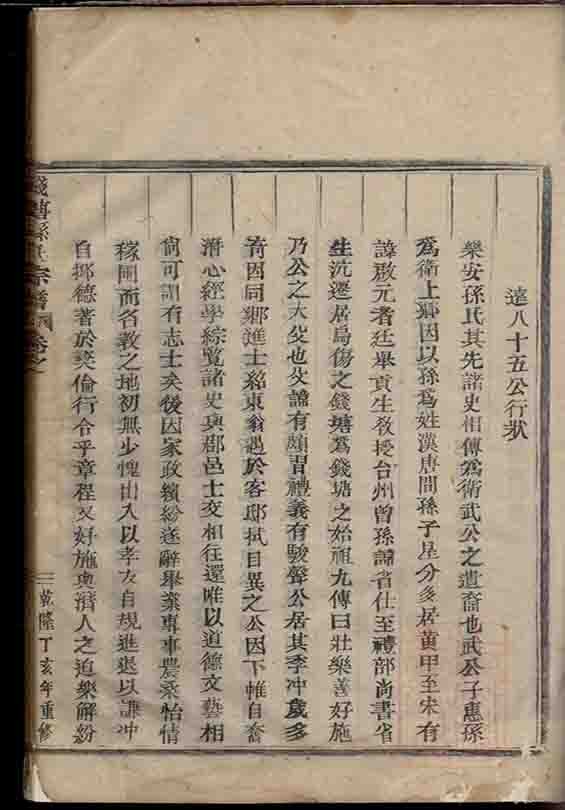 遠八十五公行狀
樂安孫氏其先諸史相傳為衛武公之遺裔也武公子惠孫
為衛上卿因以孫為姓漢唐間孫子星分多居黃甲至宋有
諱啟元者廷舉貢生敎授台州曾孫諱省仕至禮部尚書省
生沆遷居烏傷之錢塘為錢塘之始祖九傳曰壯樂善好施
乃公之大父也父諱有頤習禮義有駿聲公居其季冲歲多
奇因同鄉進士銘東翁遇於客邸拭目異之公因下帷自奮
潛心經學綜覽諸史與郡邑士交相往還唯以道德文藝相
尚可謂有志士矣後因家政繽紛遂辭舉業專事農桑怡情
稼圃而名教之地初無少愧出入以孝友自規進退以謙冲
自抑德著於彝倫行合乎章程又好施與濟人之迫樂解紛
孫氏宗譜 卷之
乾隆丁亥年重修